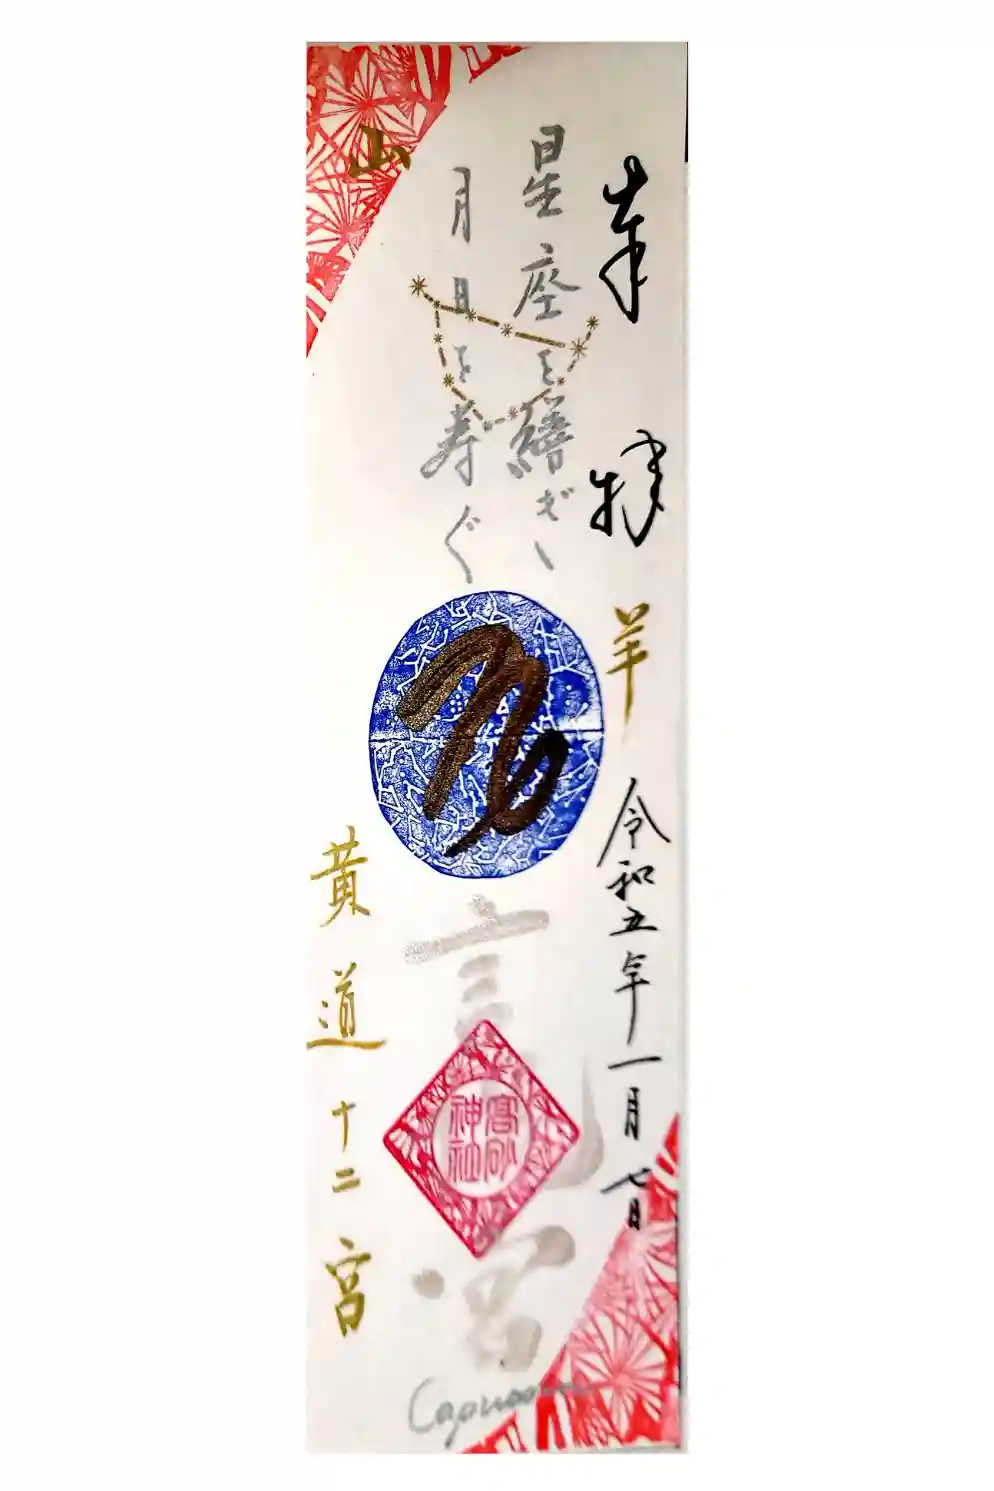 奉拝
羊
令和五年一月七日
星座を繕ぎ、
月日を寿ぐ
山
高砂
神社
宮
黄道十二宮
Capricorn